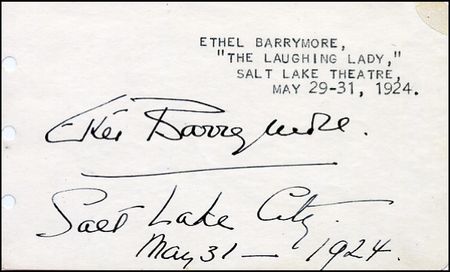 ETHEL BARRYMORE,
"THE LAUGHING LADY,"
SALT LAKE THEATRE,
MAY 29-31, 1924.
Ethel Barrymore.
Salt Lake City.
May 31 — 1924.